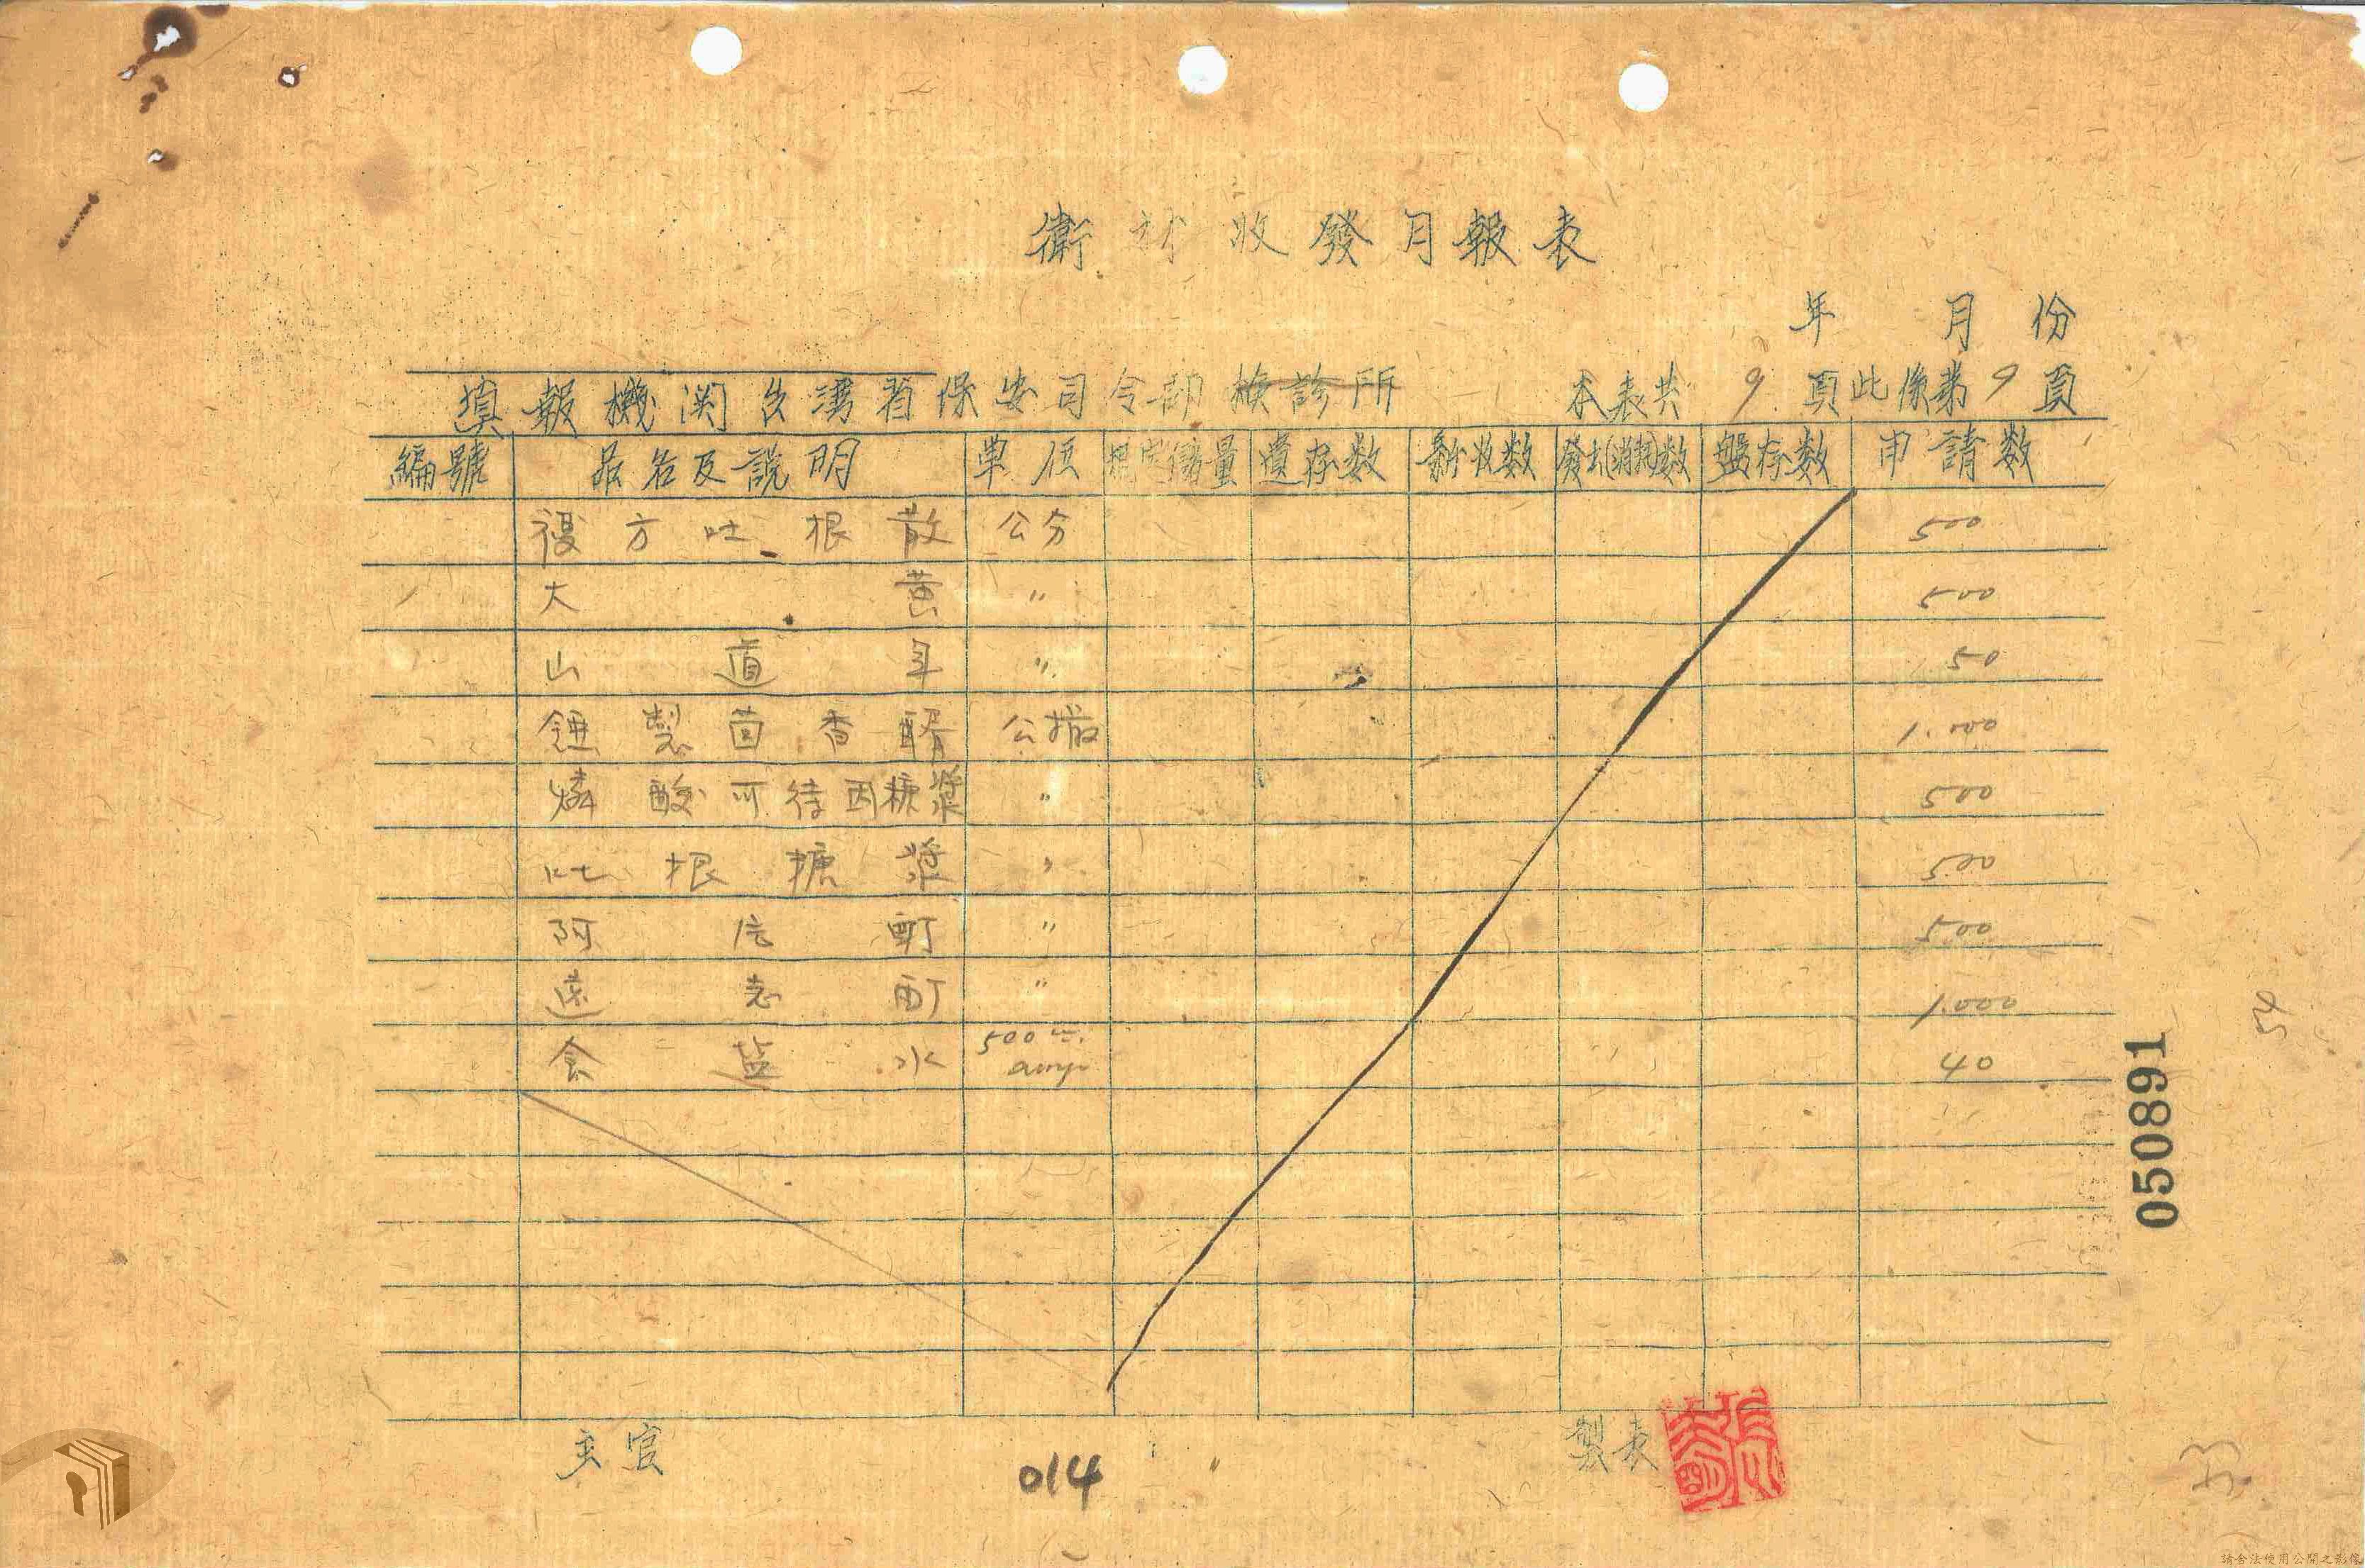 衛材收發月報表
年 月 份
填報機関台湾省保安司令部檢診所 本表共9頁此係第9頁
編號 品名及説明 單位 規定儲量 遺存数 新收数 發出(消耗)数 盤存数 申請数
複方吐根散 公分 500
大黃 〃 500
山道年 〃 50
公撮 1.000
燐酸可待因糖漿 〃 500
吐根糖漿 〃 500
阿片酊 〃 500
遠志酊 〃 1.000
食盐水 500cc. amp. 40
050891
主官 製表
014
請合法使用公開之影像